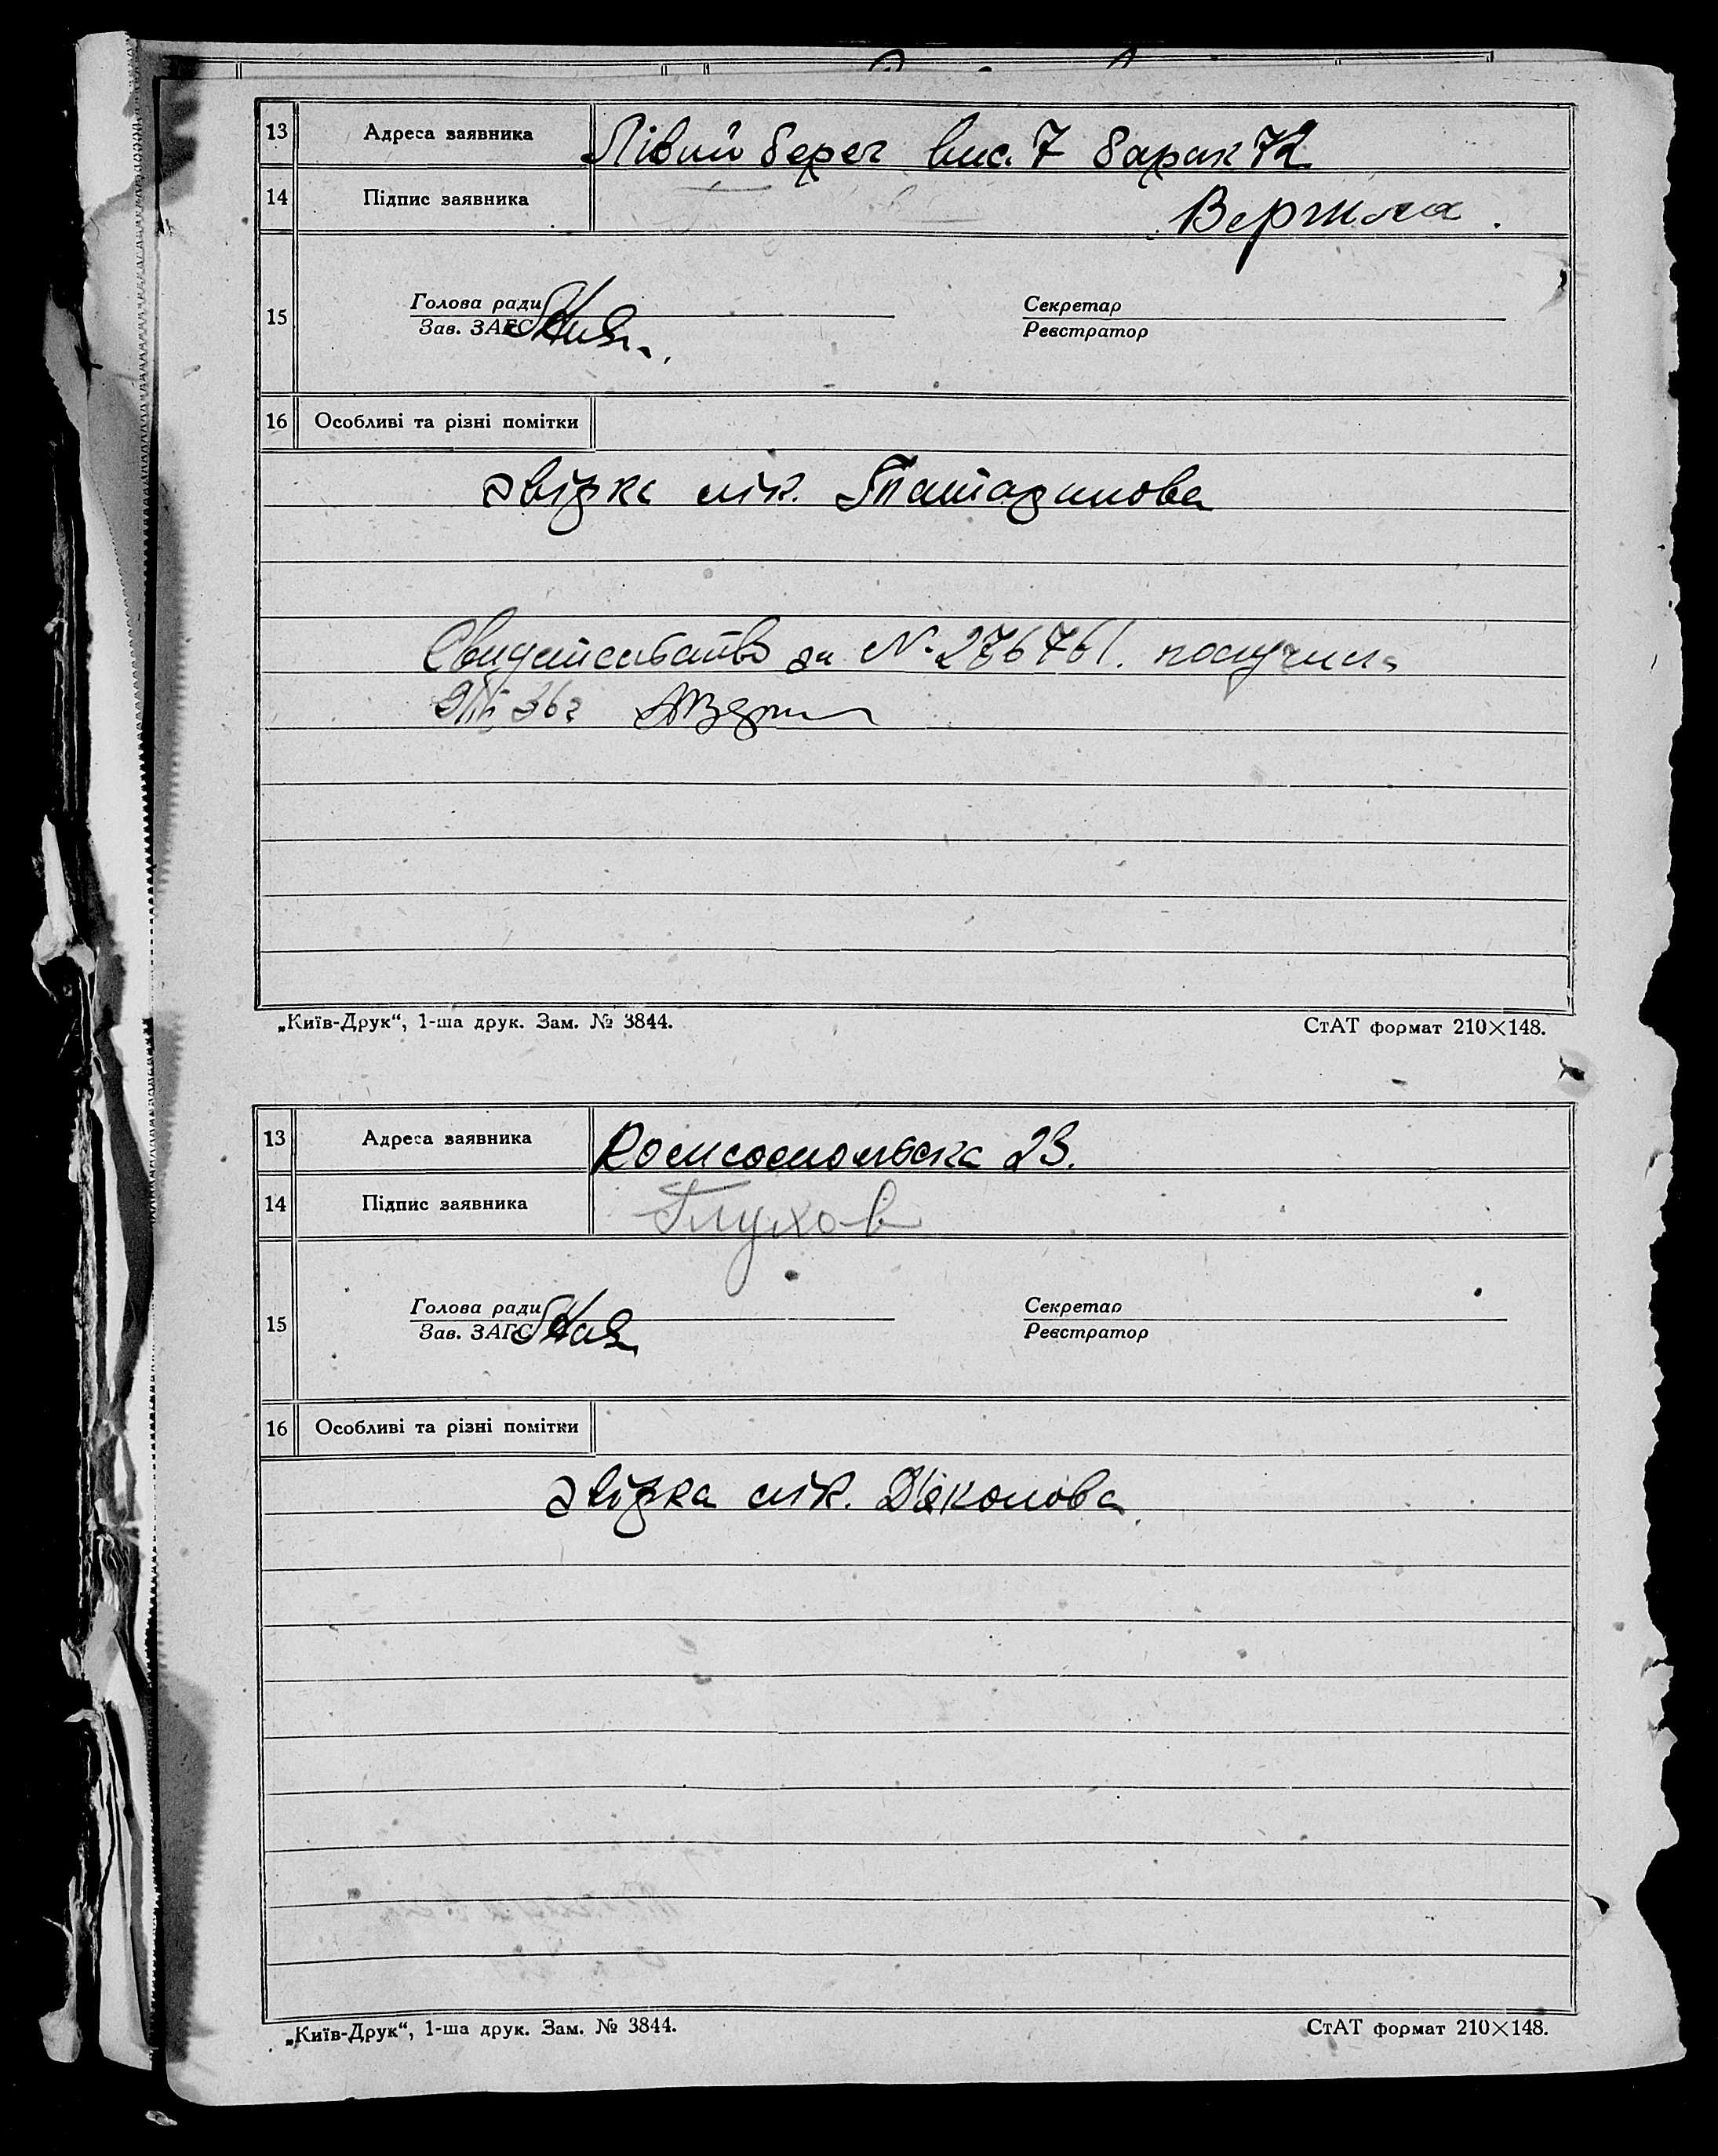 13 Адреса заявника Лівий берег вис. 7 барак 72
14 Підпис заявника
15 Голова ради Секретар
Зав. ЗАГС Реєстратор
16 Особливі та різні помітки
звірка лік.
Свидетельство за №276761. получил
36г
„Київ-Друк“, 1-ша друк. Зам. № 3844. СтАТ формат 210×148.
13 Адреса заявника Комсомольска 23.
14 Підпис заявника Глухов
15 Голова ради Секретар
Зав. ЗАГС Реєстратор
16 Особливі та різні помітки
звірка лік. Д'яконова
„Київ-Друк“, 1-ша друк. Зам. № 3844. СтАТ формат 210×148.